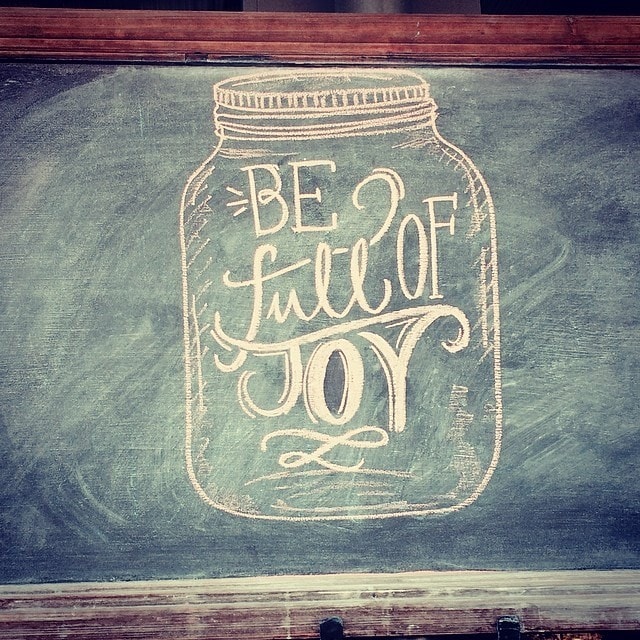 BE
full OF
JOY